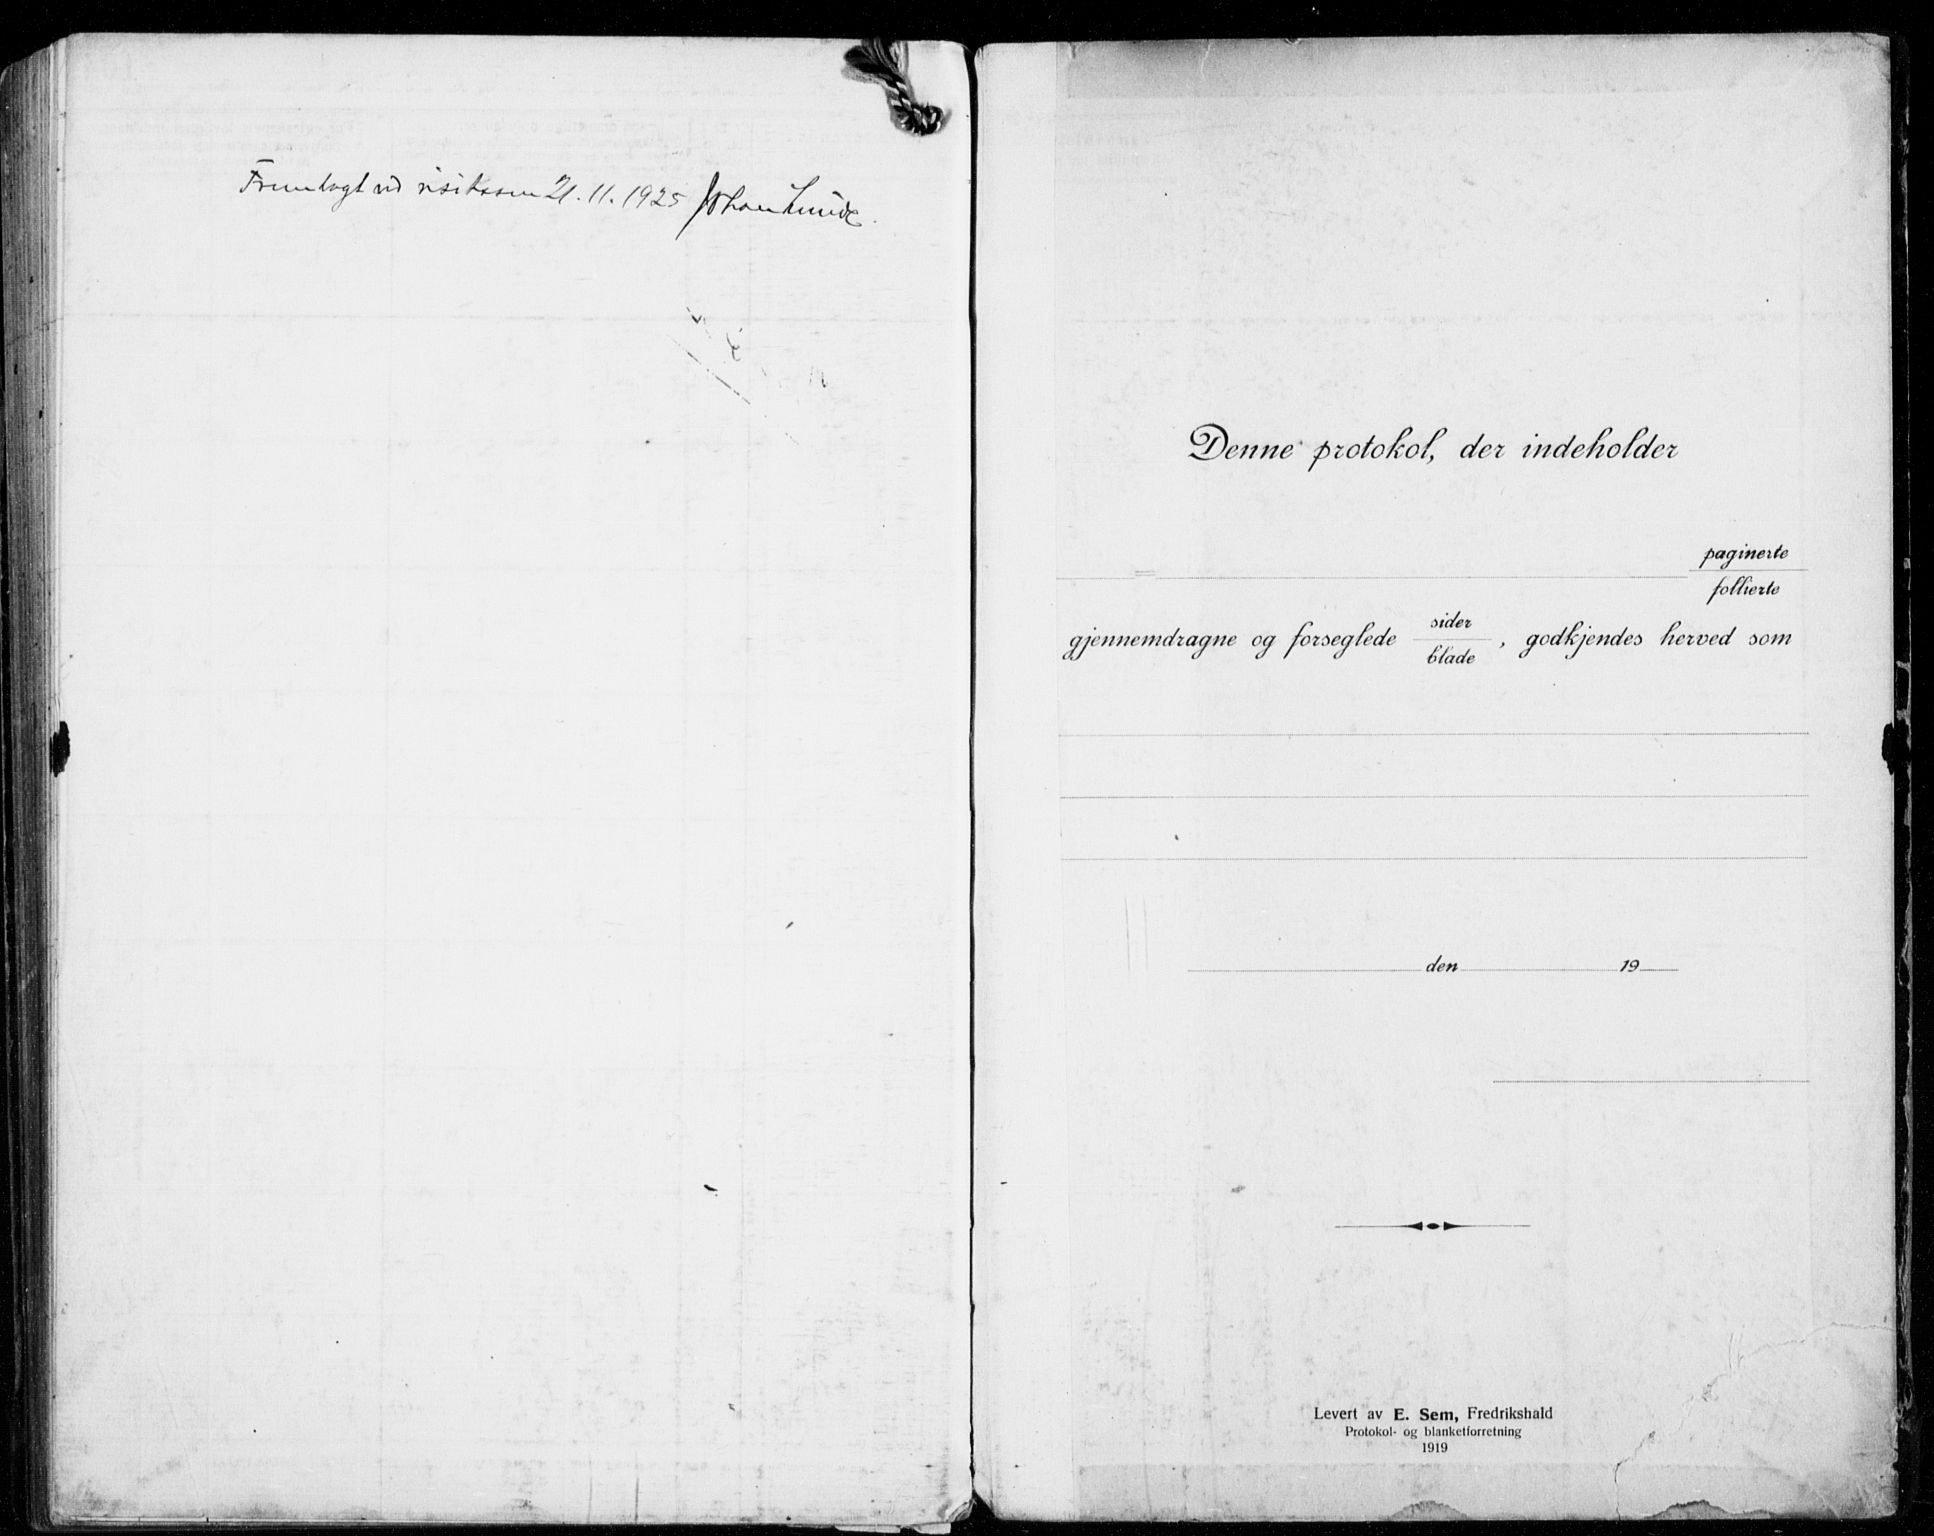 Fremlagt ved visitasen 21.11.1925 Johan Lunde
Denne protokol, der indeholder
paginerte
follierte
gjennemdragne og forseglede sider , godkjendes herved som
blade
den 19
Levert av E. Sem, Fredrikshald
Protokol- og blanketforretning
1919